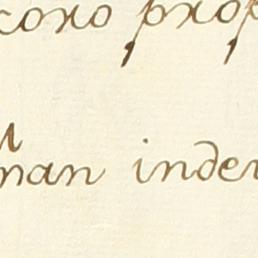 coro prop
man inder